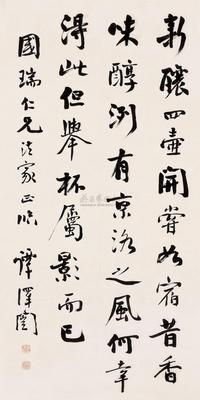 新釀四壺開嘗如宿昔香
味醇洌有京洛之風何幸
得此但舉杯屬影而已
國瑞仁兄法家正临 譚澤闓